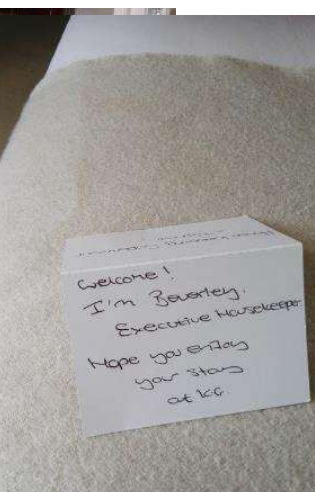 Welcome!
I'm Beverley,
Executive Housekeeper
Hope you enjoy
your stay
at